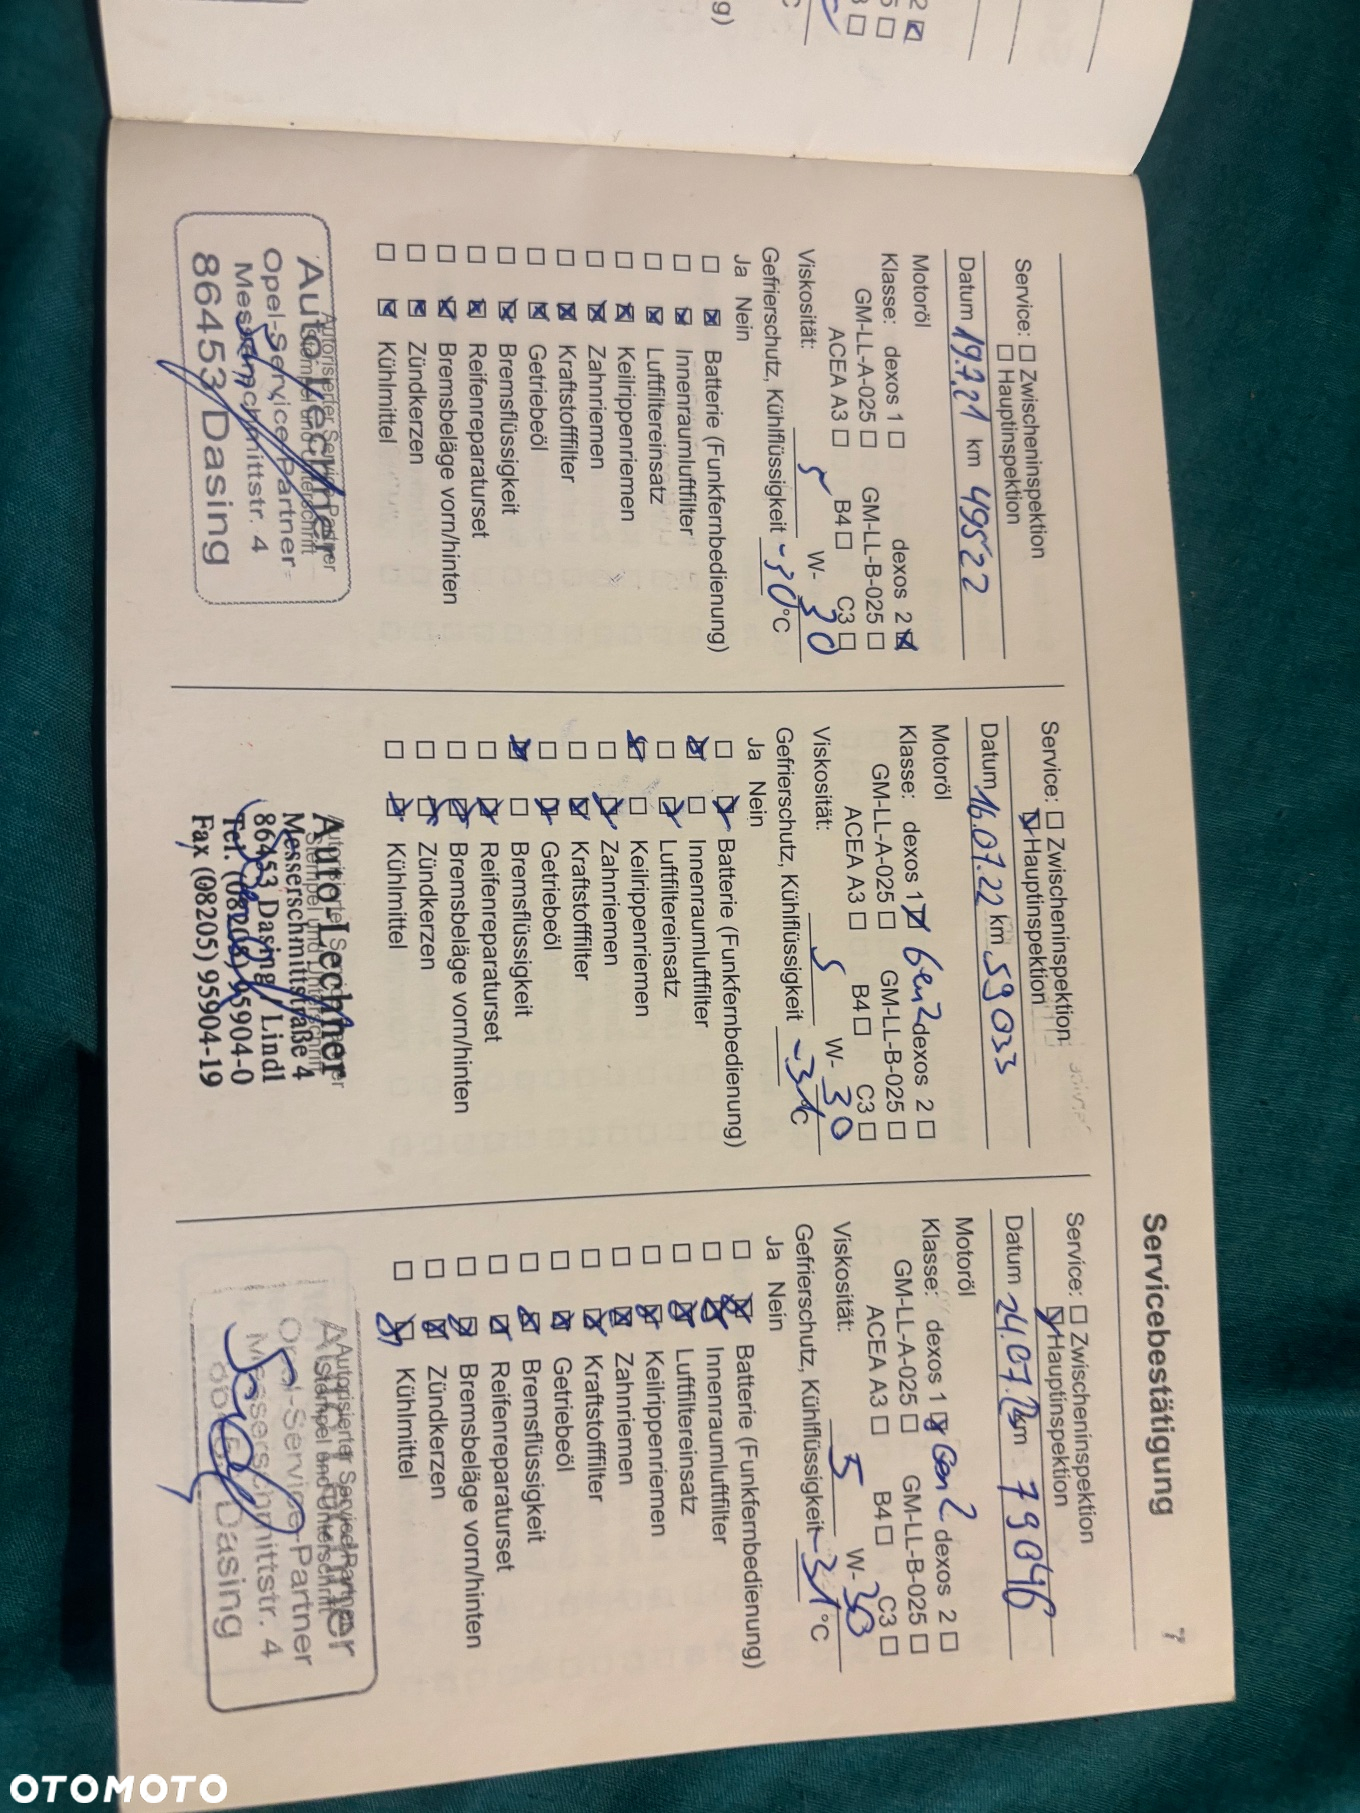 Servicebestätigung 7
Service: Zwischeninspektion
Hauptinspektion
Datum 19.7.21 km 49522
Motoröl
Klasse: dexos 1 dexos 2
GM-LL-A-025 GM-LL-B-025
ACEA A3 B4 C3
Viskosität: 5 W- 30
Gefrierschutz, Kühlflüssigkeit -30 °C
Ja Nein
Batterie (Funkfernbedienung)
Innenraumluftfilter
Luftfiltereinsatz
Keilrippenriemen
Zahnriemen
Kraftstofffilter
Getriebeöl
Bremsflüssigkeit
Reifenreparaturset
Bremsbeläge vorn/hinten
Zündkerzen
Kühlmittel
Autorisierter Service Partner
Stempel und Unterschrift
Auto Lechner
Opel-Service-Partner
Messerschmittstr. 4
86453 Dasing
Service: Zwischeninspektion
Hauptinspektion
Datum 16.07.22 km 59033
Motoröl
Klasse: dexos 1 Gen2 dexos 2
GM-LL-A-025 GM-LL-B-025
ACEA A3 B4 C3
Viskosität: 5 W- 30
Gefrierschutz, Kühlflüssigkeit -31 °C
Ja Nein
Batterie (Funkfernbedienung)
Innenraumluftfilter
Luftfiltereinsatz
Keilrippenriemen
Zahnriemen
Kraftstofffilter
Getriebeöl
Bremsflüssigkeit
Reifenreparaturset
Bremsbeläge vorn/hinten
Zündkerzen
Kühlmittel
Autorisierter Service Partner
Stempel und Unterschrift
Auto Lechner
Messerschmittstraße 4
86453 Dasing / Lindl
Tel. (08205) 95904-0
Fax (08205) 95904-19
Service: Zwischeninspektion
Hauptinspektion
Datum 24.07. km 79046
Motoröl
Klasse: dexos 1 Gen2 dexos 2
GM-LL-A-025 GM-LL-B-025
ACEA A3 B4 C3
Viskosität: 5 W- 30
Gefrierschutz, Kühlflüssigkeit -31 °C
Ja Nein
Batterie (Funkfernbedienung)
Innenraumluftfilter
Luftfiltereinsatz
Keilrippenriemen
Zahnriemen
Kraftstofffilter
Getriebeöl
Bremsflüssigkeit
Reifenreparaturset
Bremsbeläge vorn/hinten
Zündkerzen
Kühlmittel
Autorisierter Service Partner
Stempel und Unterschrift
Opel-Service-Partner
Messerschmittstr. 4
Dasing
OTOMOTO